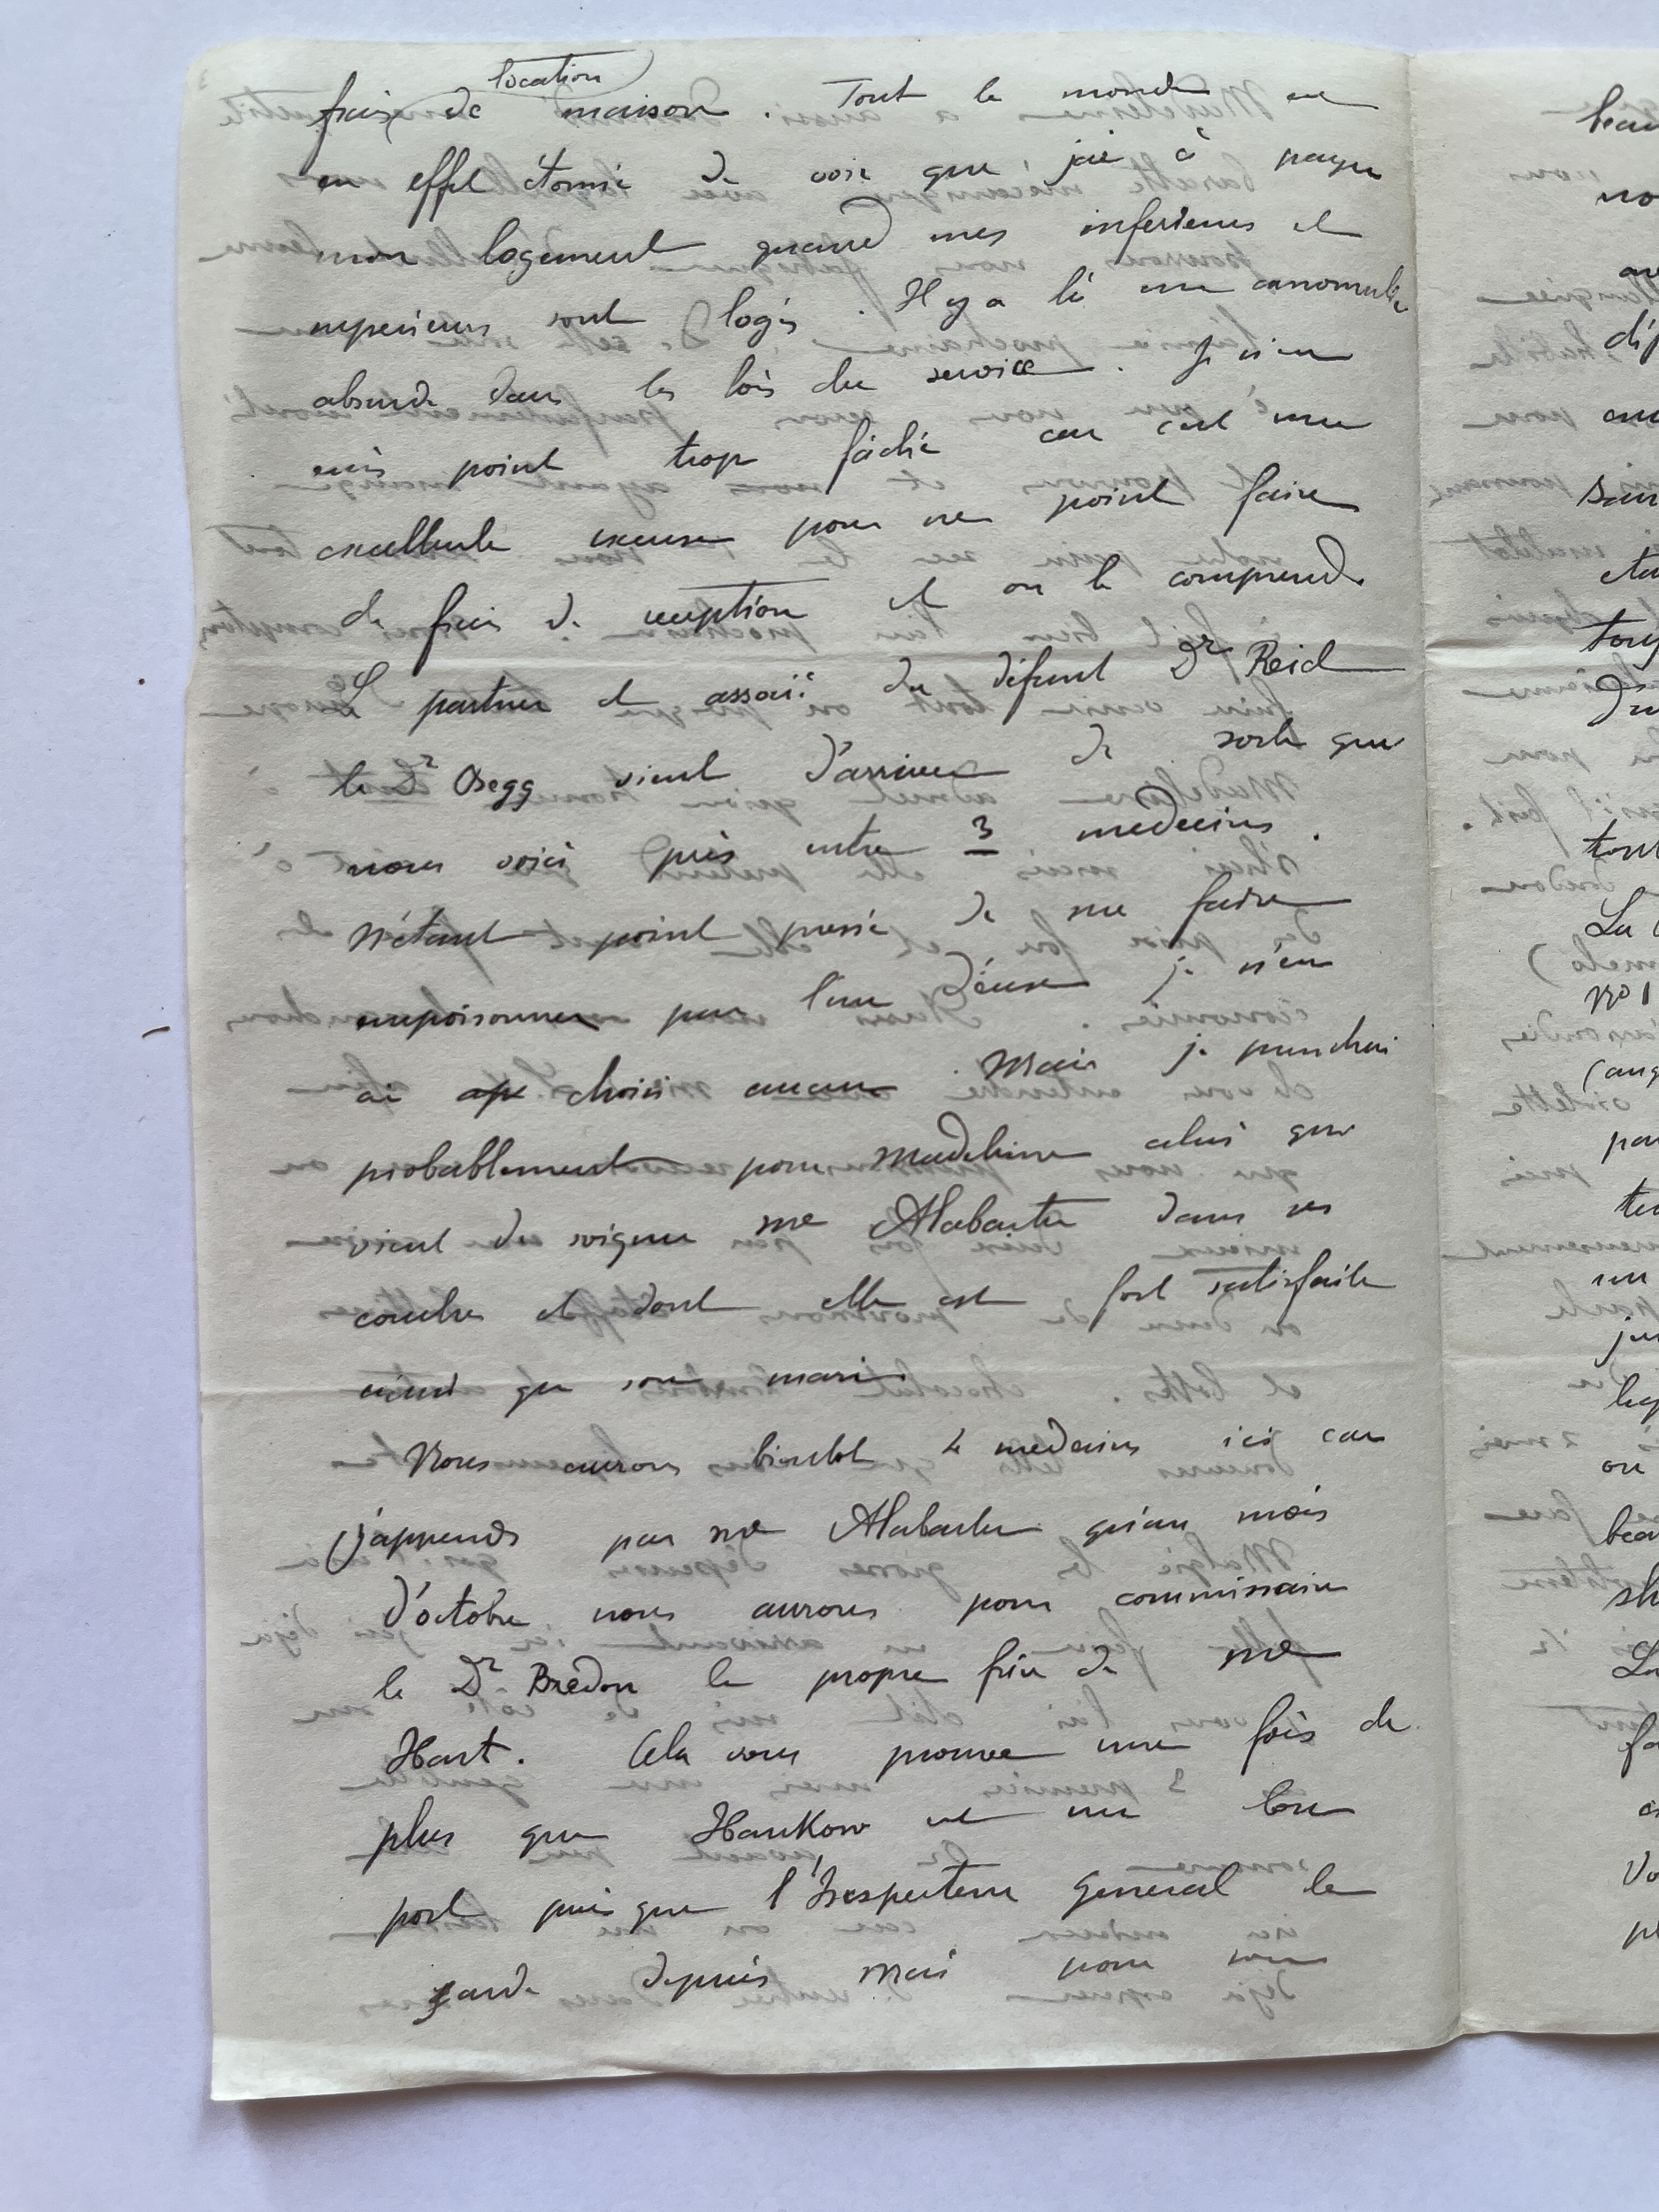 location
frais de maison. Tout le monde est
en effet étonné de voir que j'aie à payer
mon logement quand mes inferieurs et
superieurs sont logés. Il y a là une annomalie
absurde dans les lois du service. Je n'en
suis point trop fâché car c'est une
excellente excuse pour ne point faire
de frais de reception et on le comprend.
Le partner et associé du défunt Dr Reid
le Dr Begg vient d'arriver de sorte que
nous voici pris entre 3 medecins.
N'étant point pressé de me faire
empoisonner par l'un d'eux je n'en
ai choisi aucun. Mais je pencherai
probablement pour Madeleine celui qui
vient de soigner Me Alabaster dans ses
couches et dont elle est fort satisfaite
ainsi que son mari.
Nous aurons bientot 4 medecins ici car
j'apprends par Me Alabaster qu'au mois
d'octobre nous aurons pour commissaire
le Dr Bredon le propre frère de Me
Hart. Cela vous prouve une fois de
plus que Hankow est un bon
port puisque l'Inspecteur General le
garde depuis Mai pour son